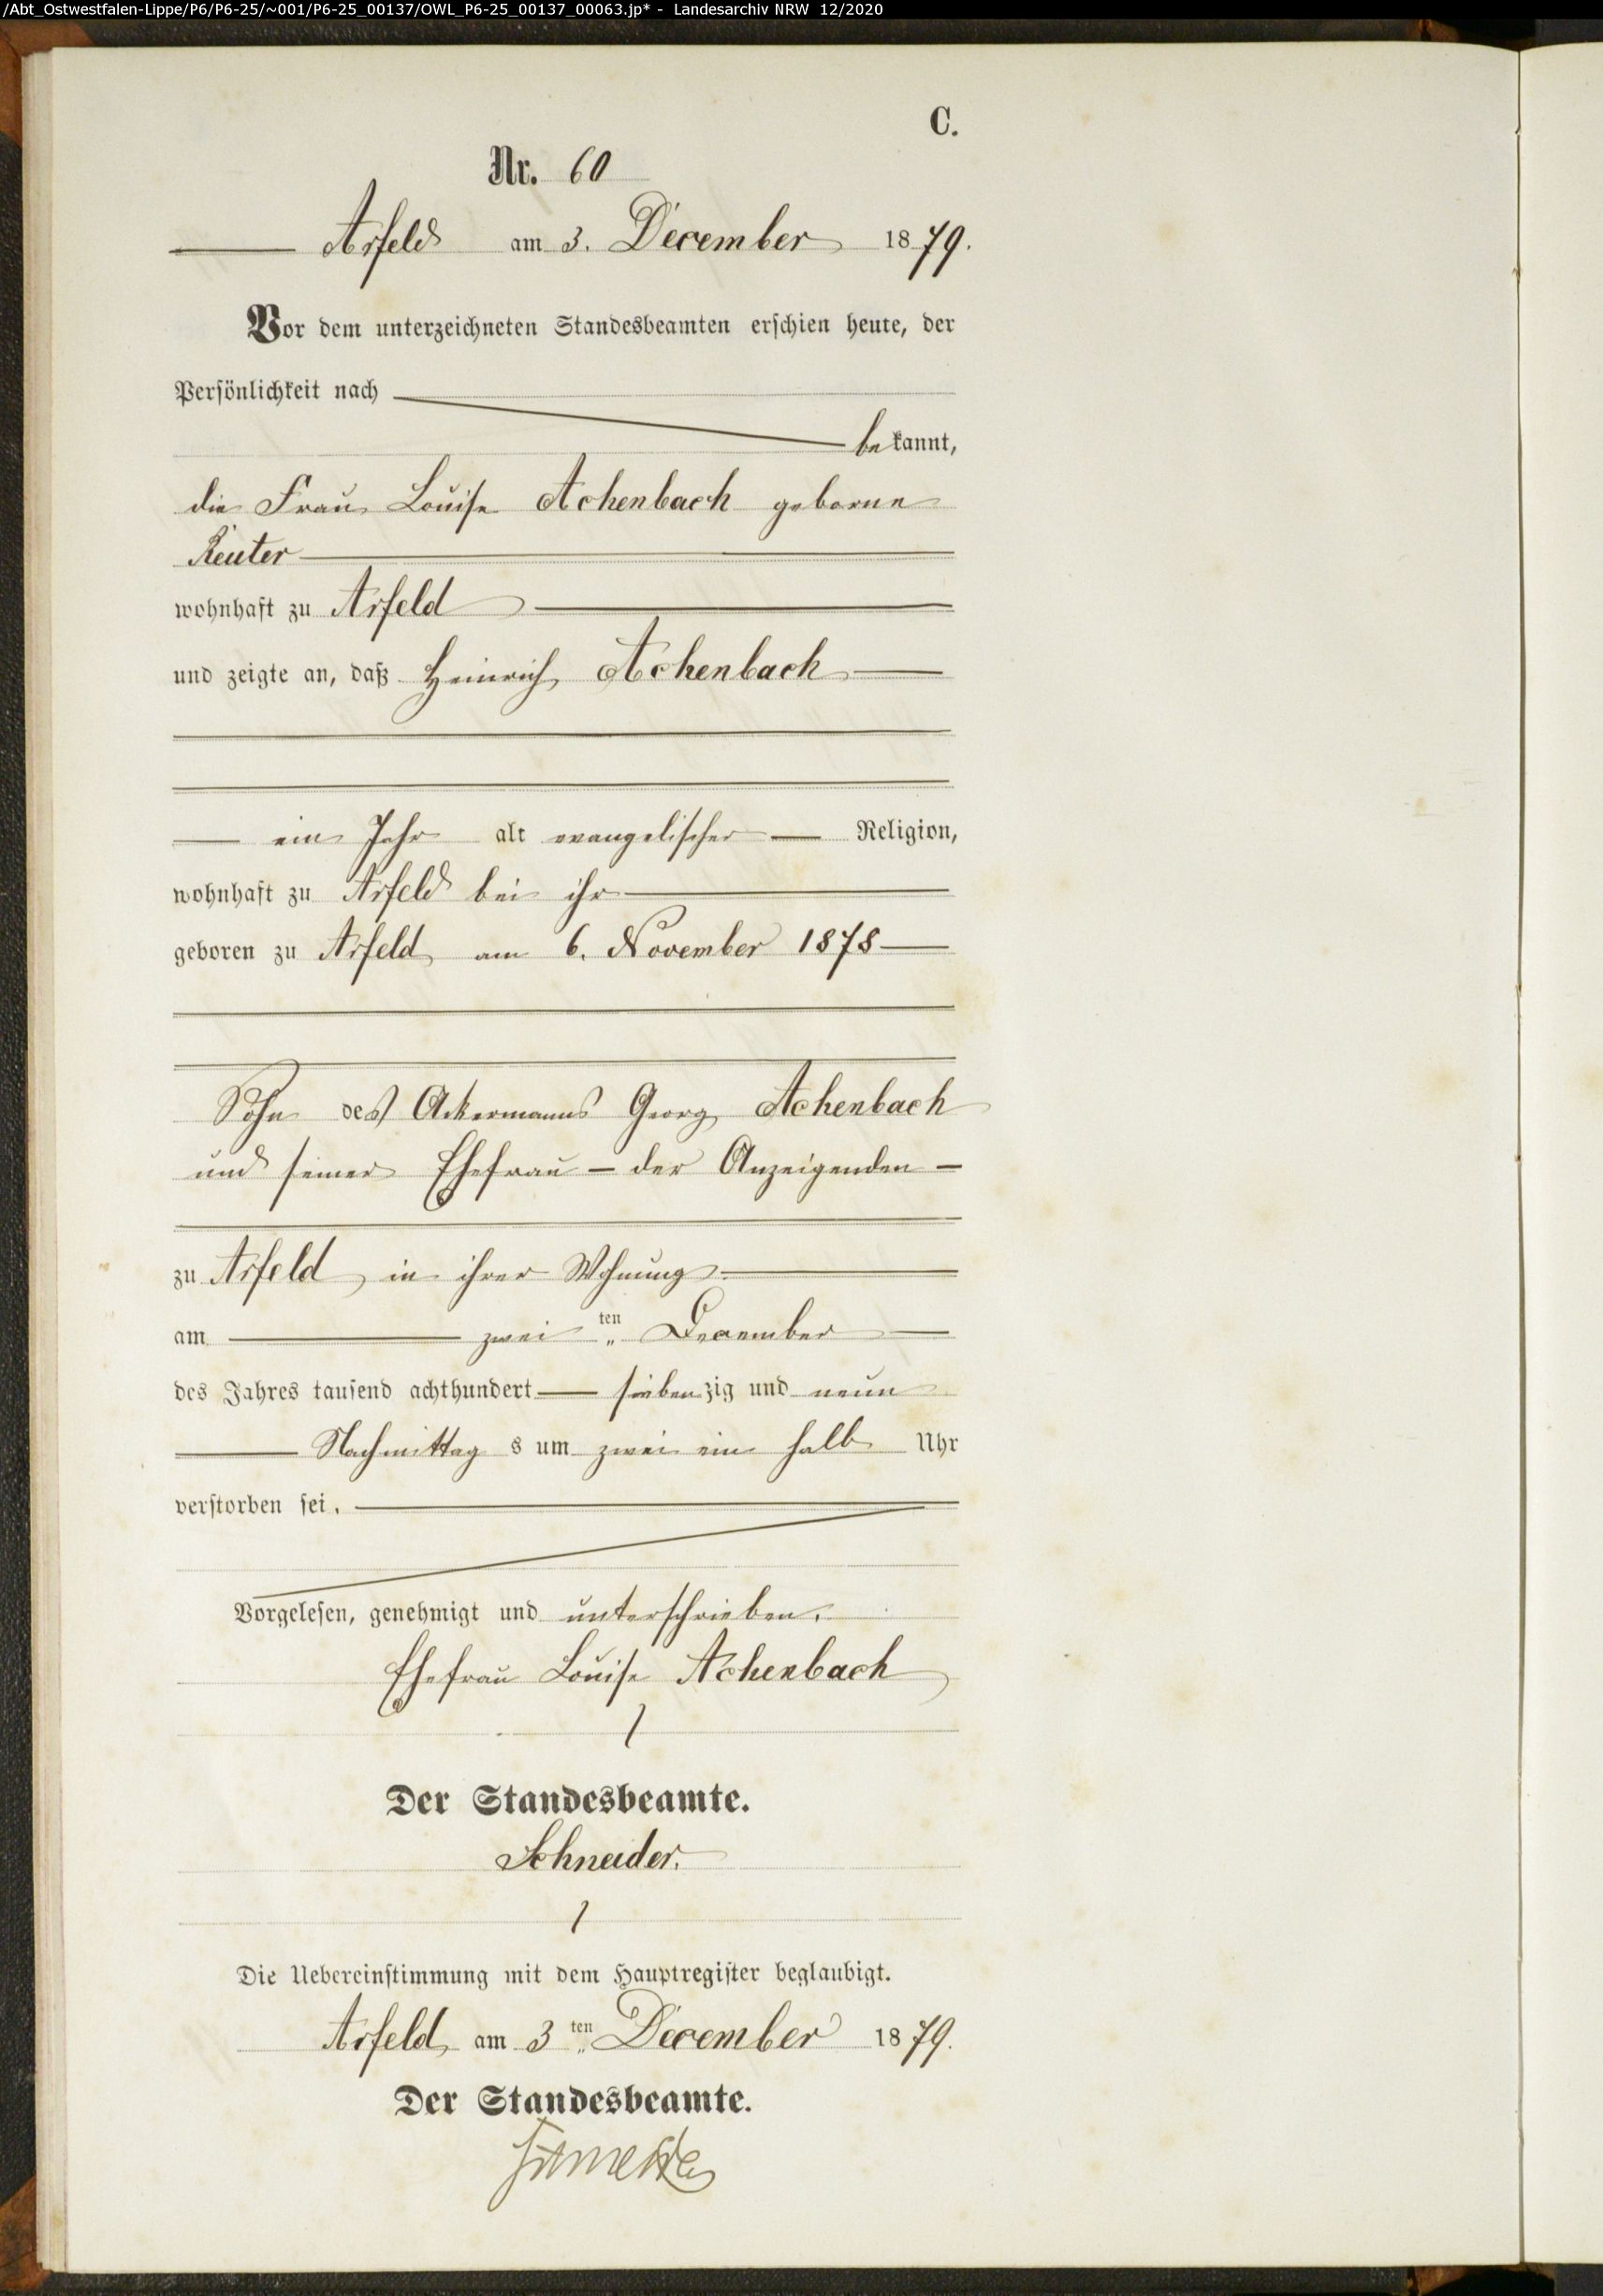 /Abt_Ostwestfalen-Lippe/P6/P6-25/~001/P6-25_00137/OWL_P6-25_00137_00063.jp* - Landesarchiv NRW 12/2020
C.
Nr. 60
Arfeld am 3. December 1879.
Vor dem unterzeichneten Standesbeamten erschien heute, der
Persönlichkeit nach
bekannt,
die Frau Louise Achenbach geborne
Reuter
wohnhaft zu Arfeld
und zeigte an, daß Heinrich Achenbach
ein Jahr alt evangelischer Religion,
wohnhaft zu Arfeld bei ihr
geboren zu Arfeld am 6. November 1878
Sohn des Ackermanns Georg Achenbach
und seiner Ehefrau - der Anzeigenden -
zu Arfeld in ihrer Wohnung
am zwei ten December
des Jahres tausend achthundert siebenzig und neun
Nachmittag s um zwei ein halb Uhr
verstorben sei.
Vorgelesen, genehmigt und unterschrieben.
Ehefrau Louise Achenbach
Der Standesbeamte.
Schneider.
Die Uebereinstimmung mit dem Hauptregister beglaubigt.
Arfeld, am 3 ten December 1879.
Der Standesbeamte.